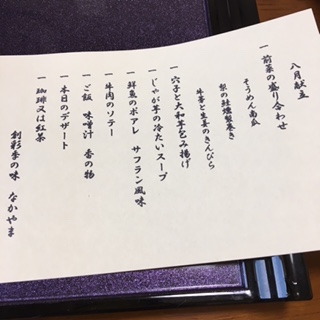 八月献立
一 前菜の盛り合わせ
そうめん南瓜
梨の牡蠣製巻き
牛蒡と生姜のきんぴら
一 穴子と大和芋包み揚げ
一 じゃが芋の冷たいスープ
一 鮮魚のポアレ サフラン風味
一 牛肉のソテー
一 ご飯 味噌汁 香の物
一 本日のデザート
一 珈琲又は紅茶
創彩季の味 なかやま